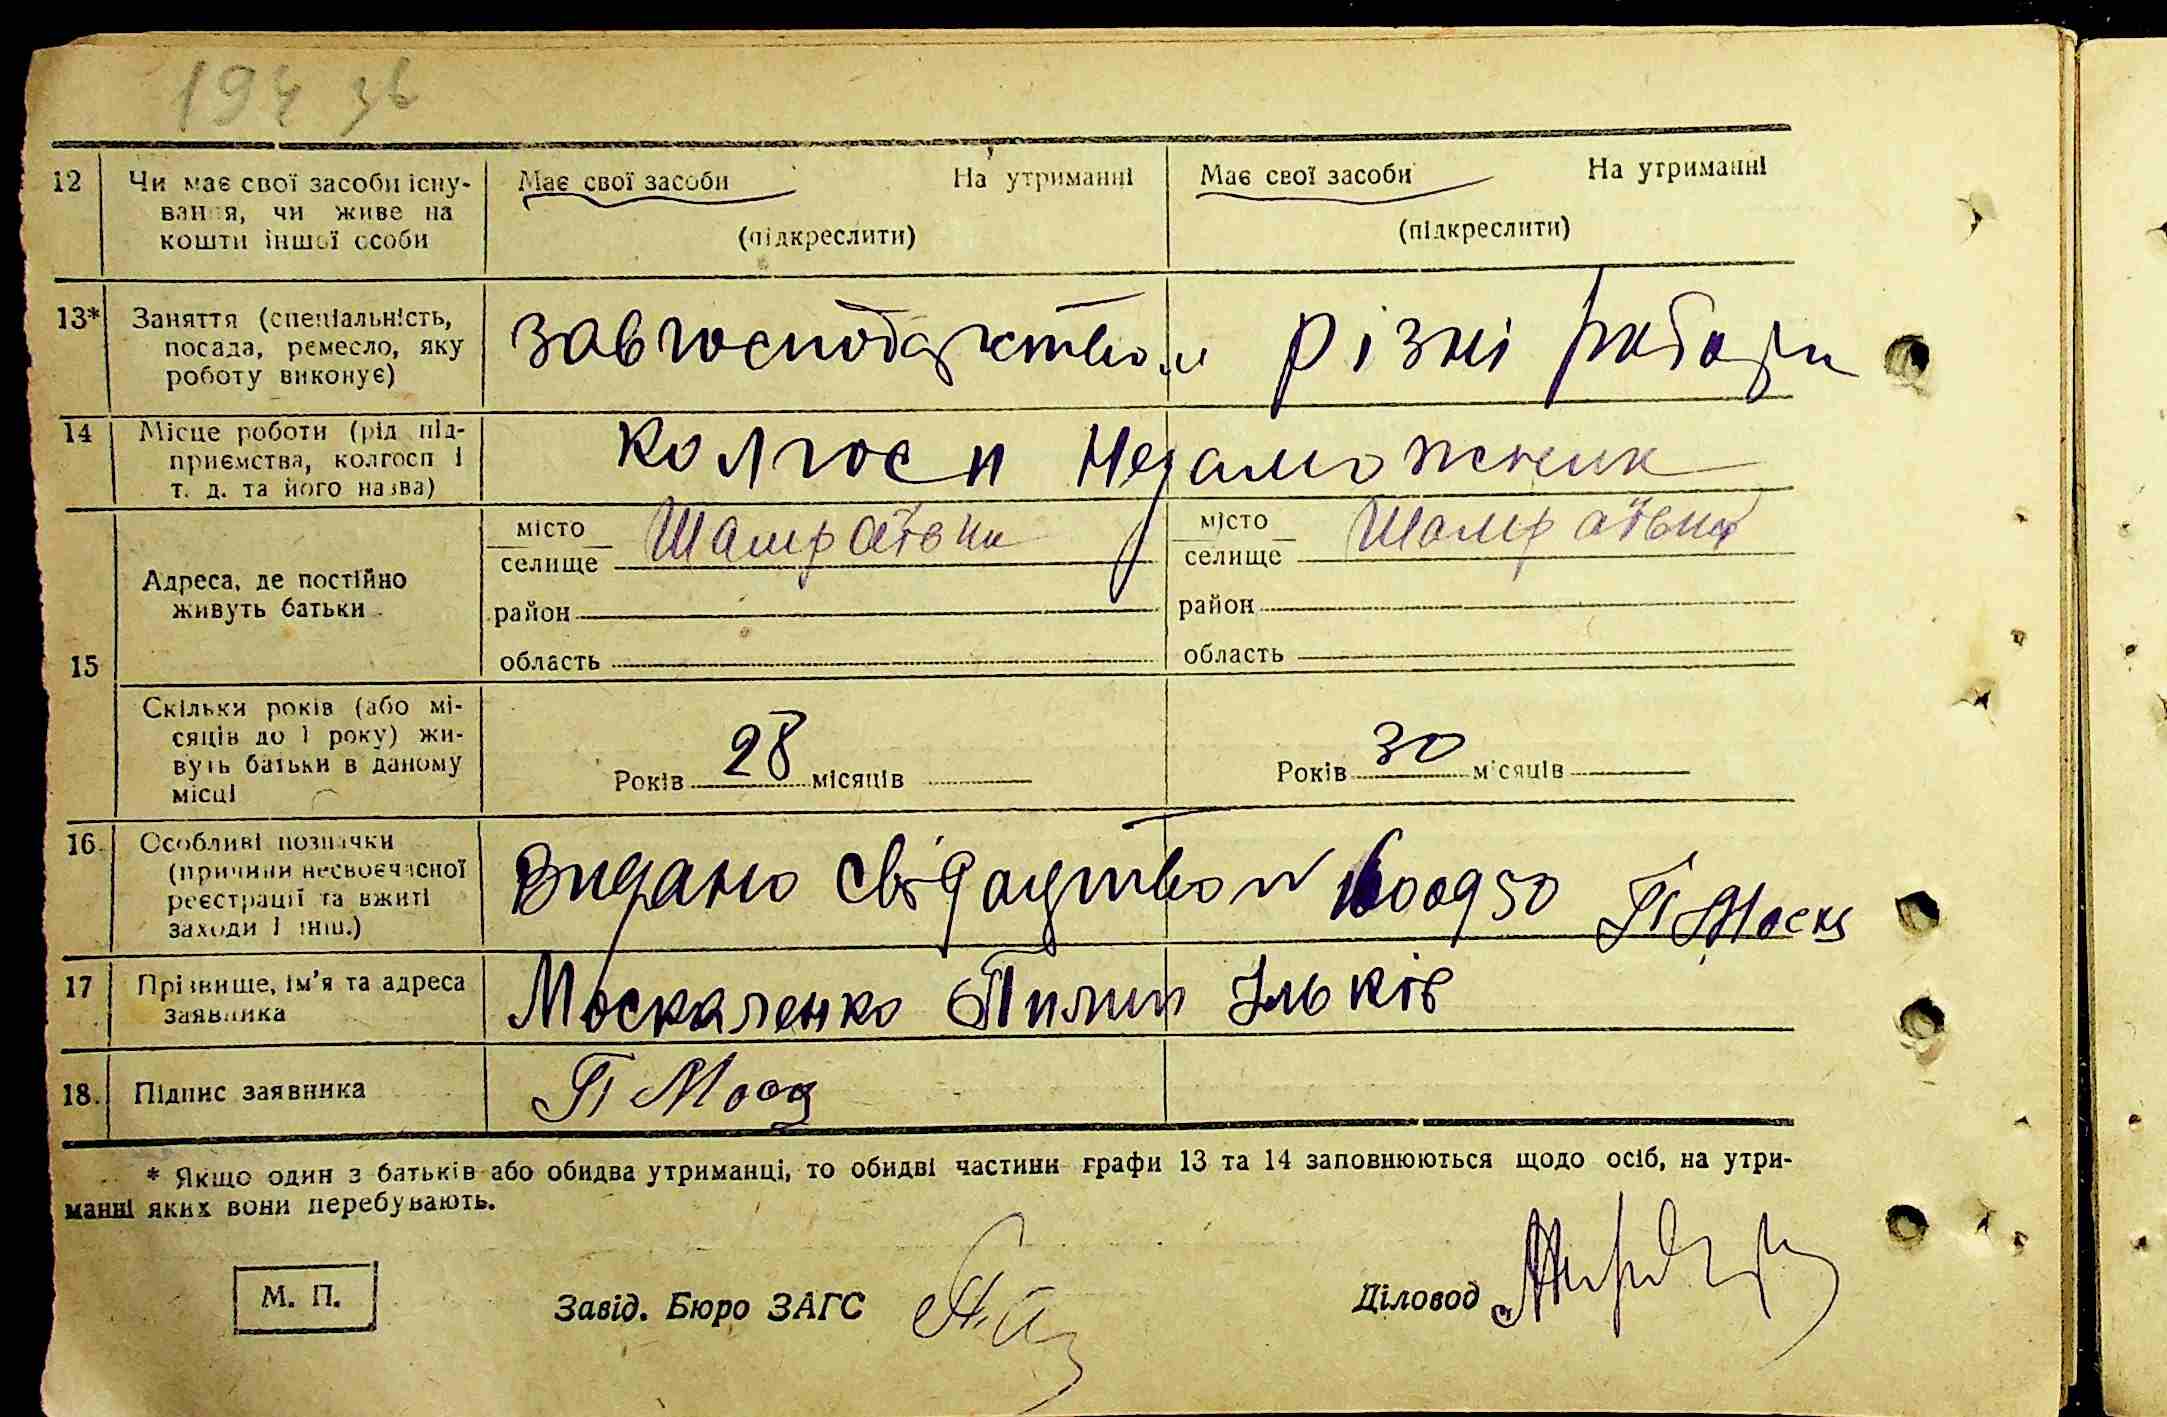 194 зв
12 Чи має свої засоби існу- Має свої засоби На утриманні Має свої засоби На утриманні
вання, чи живе на
кошти іншої особи (підкреслити) (підкреслити)
13* Заняття (спеціальність,
посада, ремесло, яку завгосподарством різні работи
роботу виконує)
14 Місце роботи (рід під-
приємства, колгосп і колгосп Незаможник
т. д. та його назва)
місто Шамраївки місто Шамраївка
селище селище
15 Адреса, де постійно
живуть батьки район район
область область
Скільки років (або мі-
сяців до 1 року) жи-
вуть батьки в даному Років 28 місяців Років 30 місяців
місці
16. Особливі позначки
(причини несвоєчасної Видано свідоцтво № 600950 П Моск
реєстрації та вжиті
заходи і інш.)
17 Прізвище, ім'я та адреса Москаленко Пилип Ільків
заявника
18. Підпис заявника П Моск
* Якщо один з батьків або обидва утриманці, то обидві частини графи 13 та 14 заповнюються щодо осіб, на утри-
манні яких вони перебувають.
М. П. Завід. Бюро ЗАГС Діловод